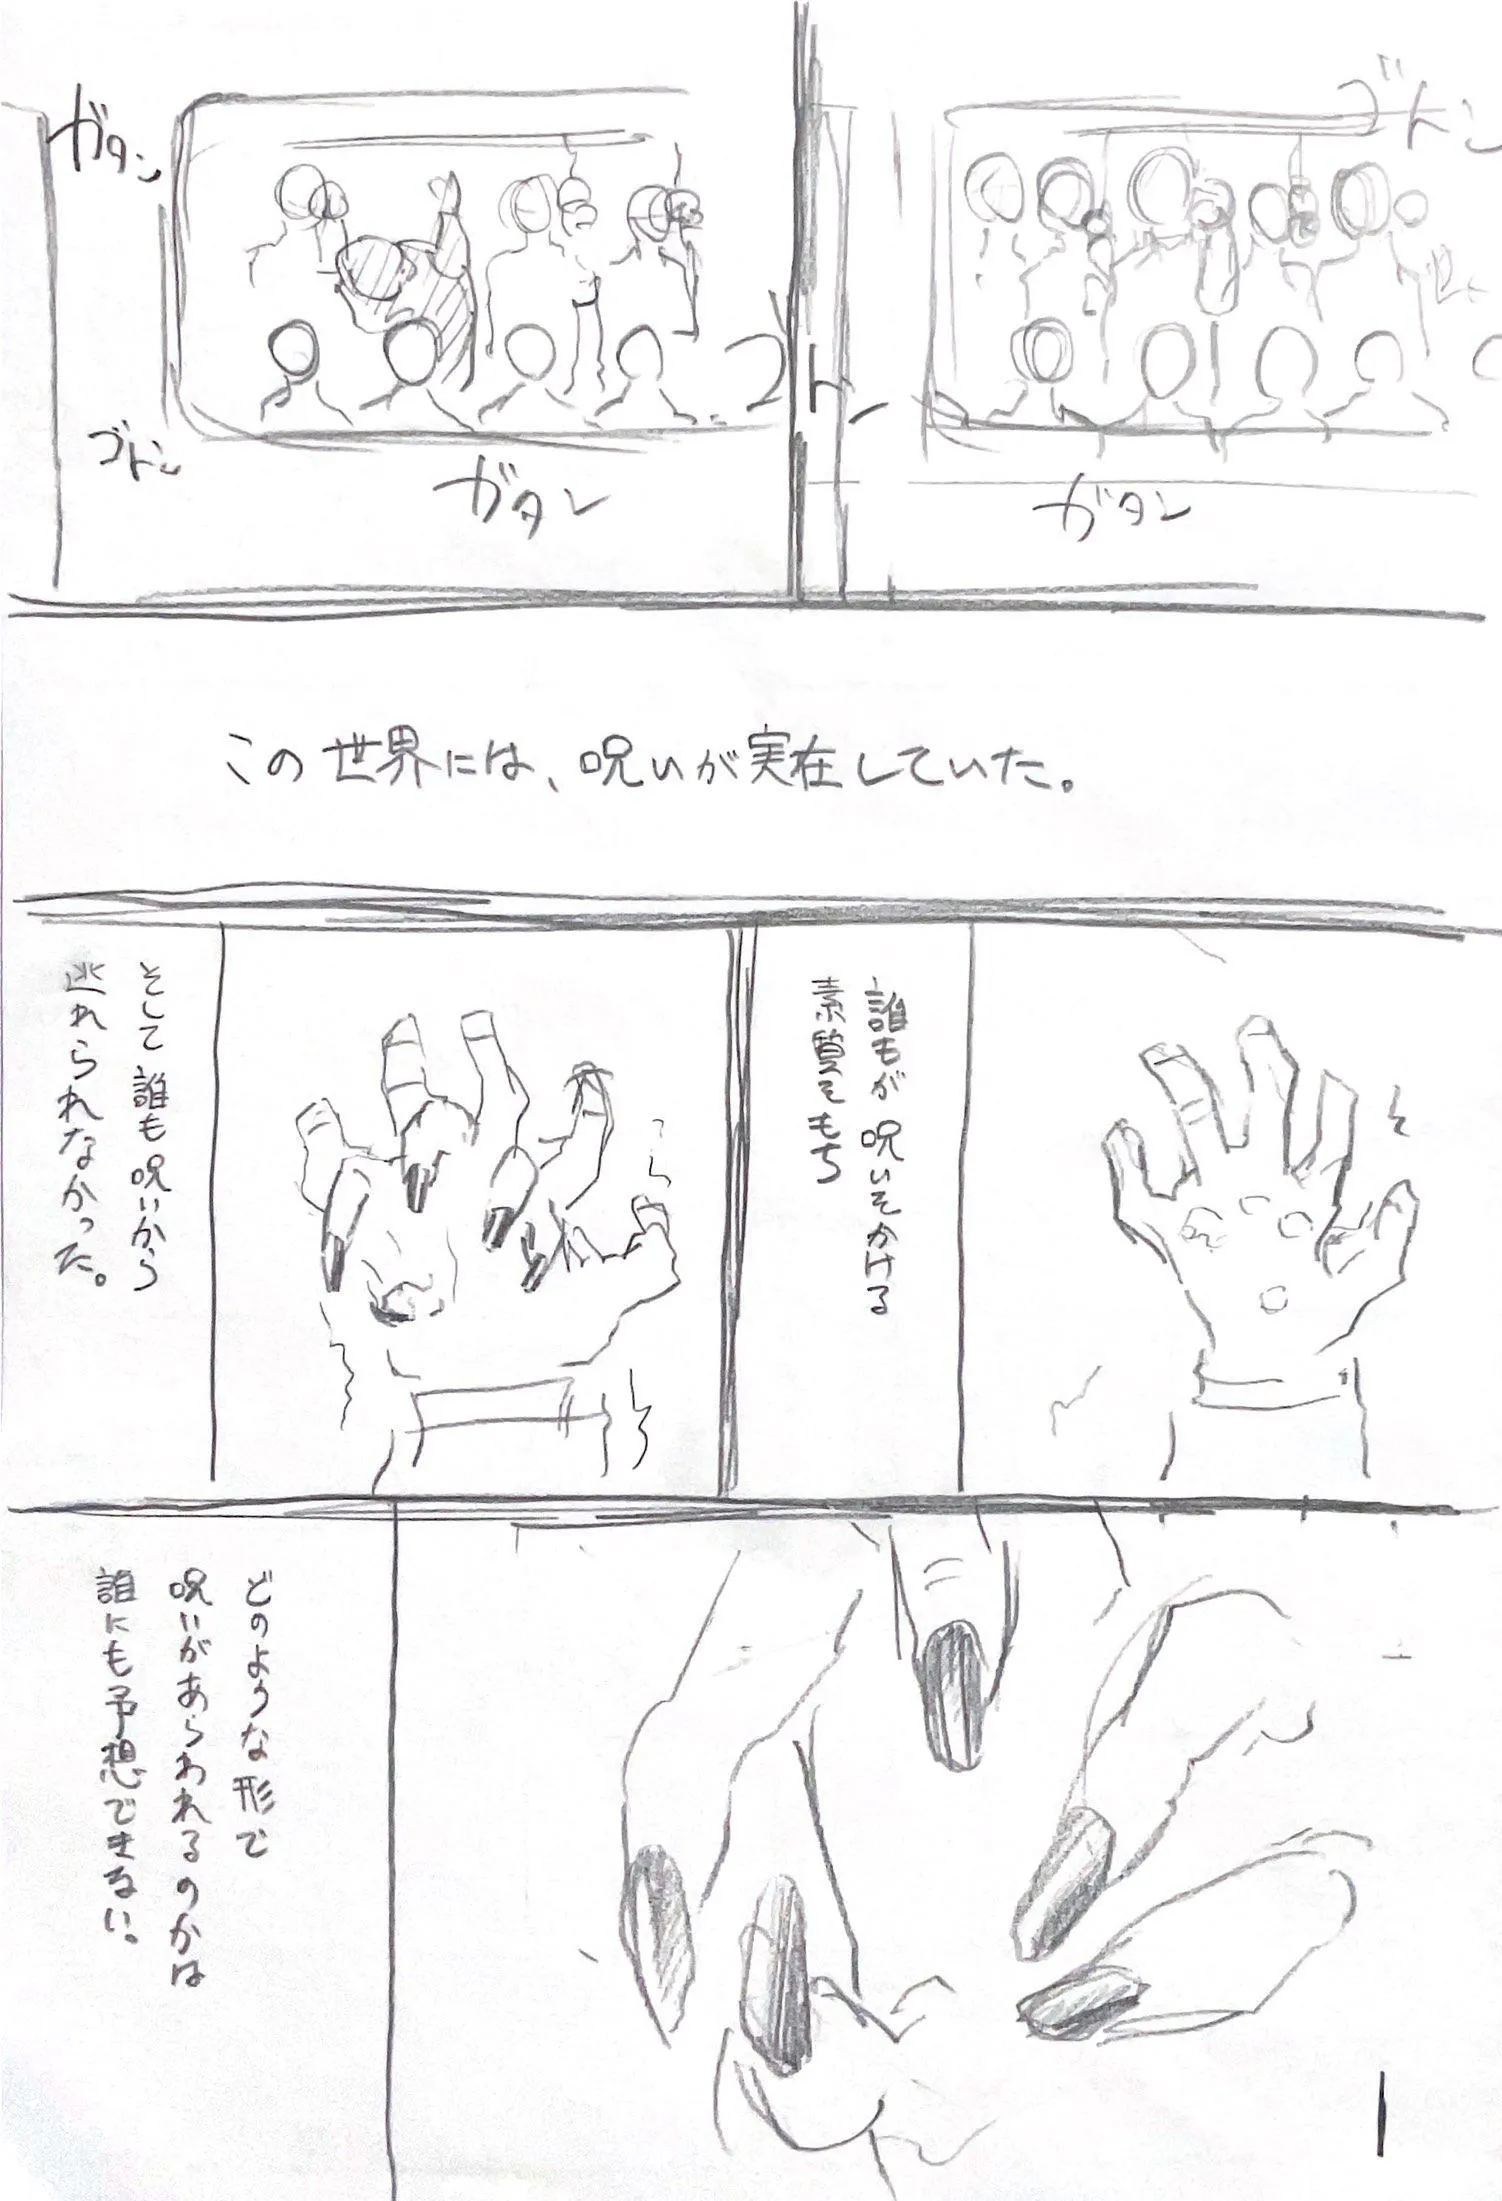 ゴトン
ガタン
ゴトン
ガタン
ガタン
ゴトン
この世界には、呪いが実在していた。
誰もが呪いをかける
素質をもち
そして誰も呪いから
逃れられなかった。
どのような形で
呪いがあらわれるのかは
誰にも予想できない。
1